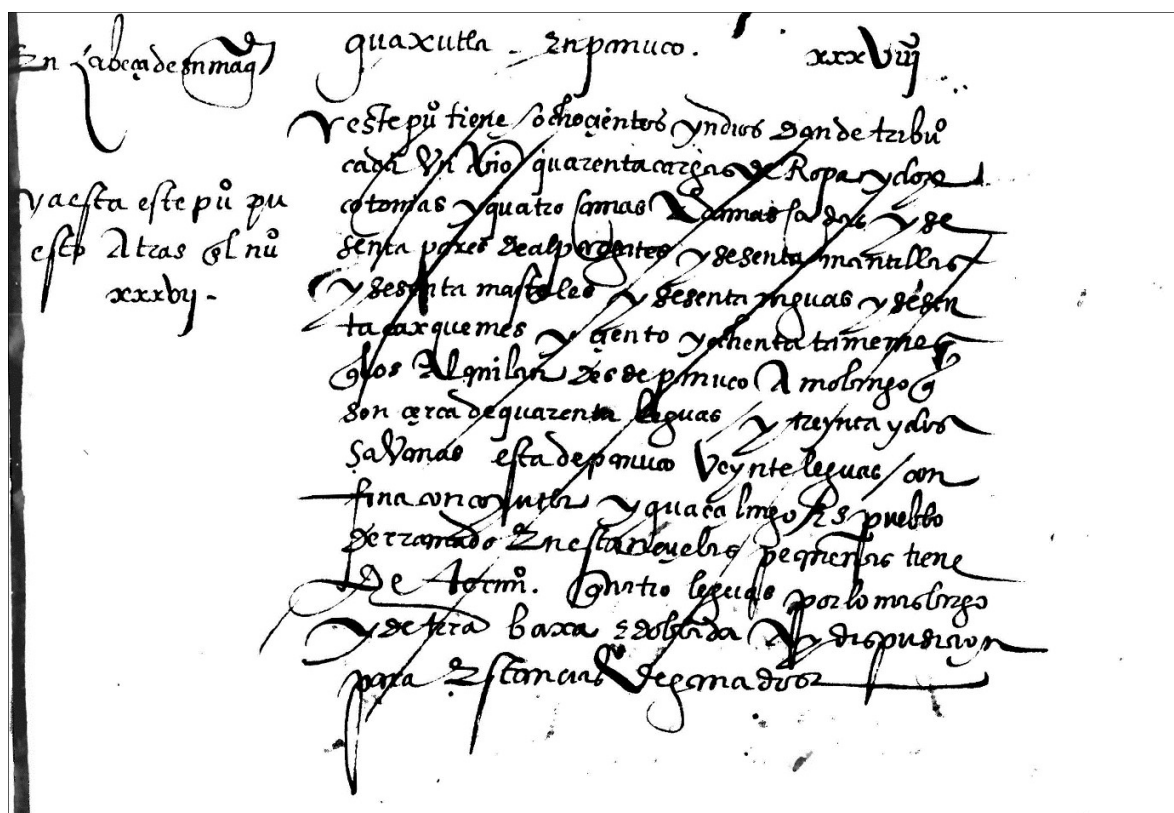 En Cabeça de su magd
guaxutla - En panuco. xxxviij
Y este pu° tiene ochoçientos yndios dan de tribu°
cada Un Año quarenta cargas de Ropa y doze
cotonias y quatro camas y se
senta pares de alpargates y sesenta mantillas
y sesenta masteles y sesenta naguas y sesen
ta caxquemes y çiento y ochenta tamemes
q los Alquilan desde panuco A molango q
son çerca de quarenta leguas y treynta y dos
savanas esta de panuco Veynte leguas / con
fina con coyutla y guaçalingo Es pueblo
derramado En estançuelas pequeñas tiene
De quatro leguas por lo mas largo
y de trra baxa E doblada Ay dispusiçion
para Estancias De ganados
ya esta este pu° pu
esto Atras el nu°
xxxvij -